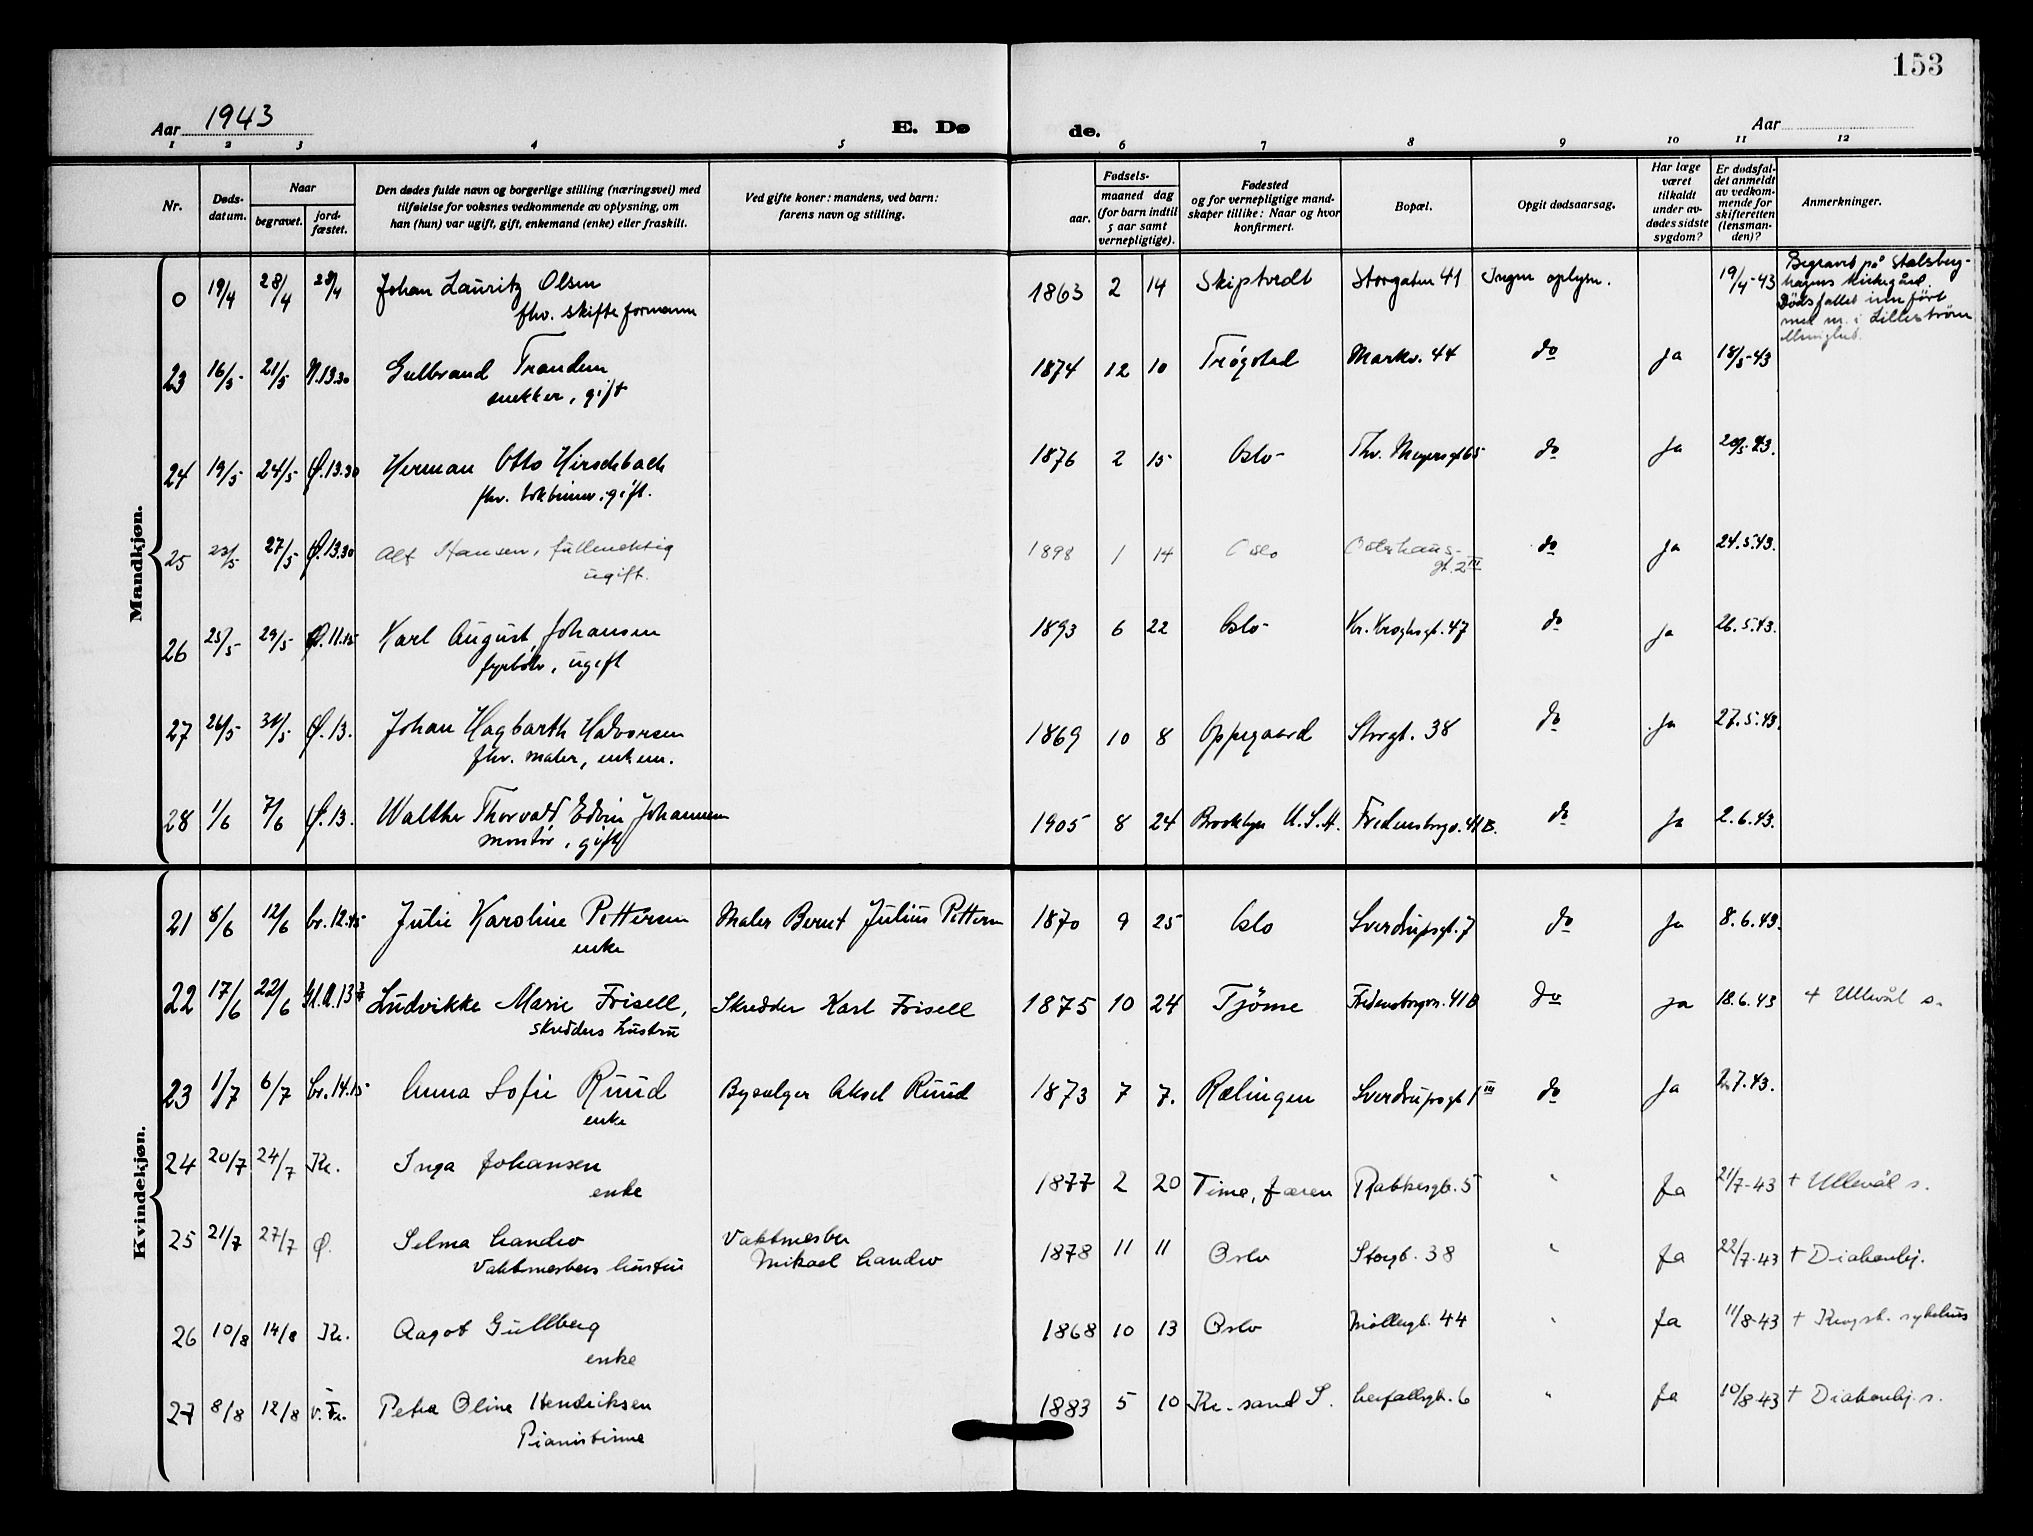 153
Aar 1943
E. Dø
de.
Aar
1 2 3 4 5 6 7 8 9 10 11 12
Nr.
Døds-
datum.
Naar
begravet.
jord-
fæstet.
Den dødes fulde navn og borgerlige stilling (næringsvei) med
tilføielse for voksnes vedkommende av oplysning, om
han (hun) var ugift, gift, enkemand (enke) eller fraskilt.
Ved gifte koner: mandens, ved barn:
farens navn og stilling.
Fødsels-
aar.
maaned dag
(for barn indtil
5 aar samt
vernepligtige).
Fødested
og for vernepligtige mand-
skaper tillike: Naar og hvor
konfirmert.
Bopæl.
Opgit dødsaarsag.
Har læge
været
tilkaldt
under av-
dødes sidste
sygdom?
Er dødsfal-
det anmeldt
av vedkom-
mende for
skifteretten
(lensman-
den)?
Anmerkninger.
Mandkjøn.
0 19/4 28/4 28/4 Johan Lauritz Olsen 1863 2 14 Skiptvedt Storgaten 41 Ingen oplysn. 19/4-43 Begravet på Stalsberg-
fhv. skifteformann
hagens kirkegård.
Dödsfallet innfört
med nr. i Lilleström
23 16/5 21/5 N.13.30 Gulbrand Trandem 1874 12 10 Trøgstad Markv. 44 do Ja 18/5-43
snekker, gift
24 19/5 24/5 Ø.13.30 Herman Otto Hirschbach 1876 2 15 Oslo Thv. Meyersgt 65 do Ja 20/5-43.
fhv. bokbinder, gift.
25 22/5 27/5 Ø.13.30 Alf Hansen, fullmektig 1898 1 14 Oslo Osterhaus- do Ja 24.5.43.
ugift. gt. 2 III
26 25/5 29/5 Ø.11.15 Karl August Johansen 1893 6 22 Oslo Kr. Kroghsgt. 47 do Ja 26.5.43.
fyrbøter, ugift
27 26/5 31/5 Ø.13. Johan Hagbarth Halvorsen 1869 10 8 Oppegaard Storgt. 38 do Ja 27.5.43.
fhv. maler, enkem.
28 1/6 7/6 Ø.13. Walther Thorvald Edvin Johannesen 1905 8 24 Brooklyn U.S.A. Fredensborgv. 41 B. do Ja 2.6.43.
montør, gift
Kvindekjøn.
21 8/6 12/6 Cr.12.45 Julie Karoline Pettersen Maler Bernt Julius Pettersen 1870 9 25 Oslo Sverdrupsgt. 7 do Ja 8.6.43.
enke
22 17/6 22/6 Gl.A.13 Ludvikke Marie Frisell, Skredder Karl Frisell 1875 10 24 Tjöme Fredensborgvn. 41 B do Ja 18.6.43 + Ullevål s.
skredders hustru
23 1/7 6/7 Cr.14.15 Anna Sofie Ruud Byselger Aksel Ruud 1873 7 7. Rælingen Sverdrupsgt 1 III do Ja 2.7.43.
enke
24 20/7 24/7 Kr. Inga Johansen 1877 2 20 Time, Jæren Rathkesgt. 5 " Ja 21/7-43 + Ullevål s.
enke
25 21/7 27/7 Ø. Selma Candro Vaktmester 1878 11 11 Oslo Storgt. 38 " Ja 22/7-43 + Diakonhj.
Vaktmesters hustru Mikael Candro
26 10/8 14/8 Kr. Aagot Gullberg 1868 10 13 Oslo Möllergt. 44 " Ja 11/8-43 + Krogst. sykehus
enke
27 8/8 12/8 V.Fr. Petra Oline Hendriksen 1883 5 10 Kr.sand S. Herfallsgt. 6 " Ja 10/8-43 + Diakonhj. s.
Pianistinne